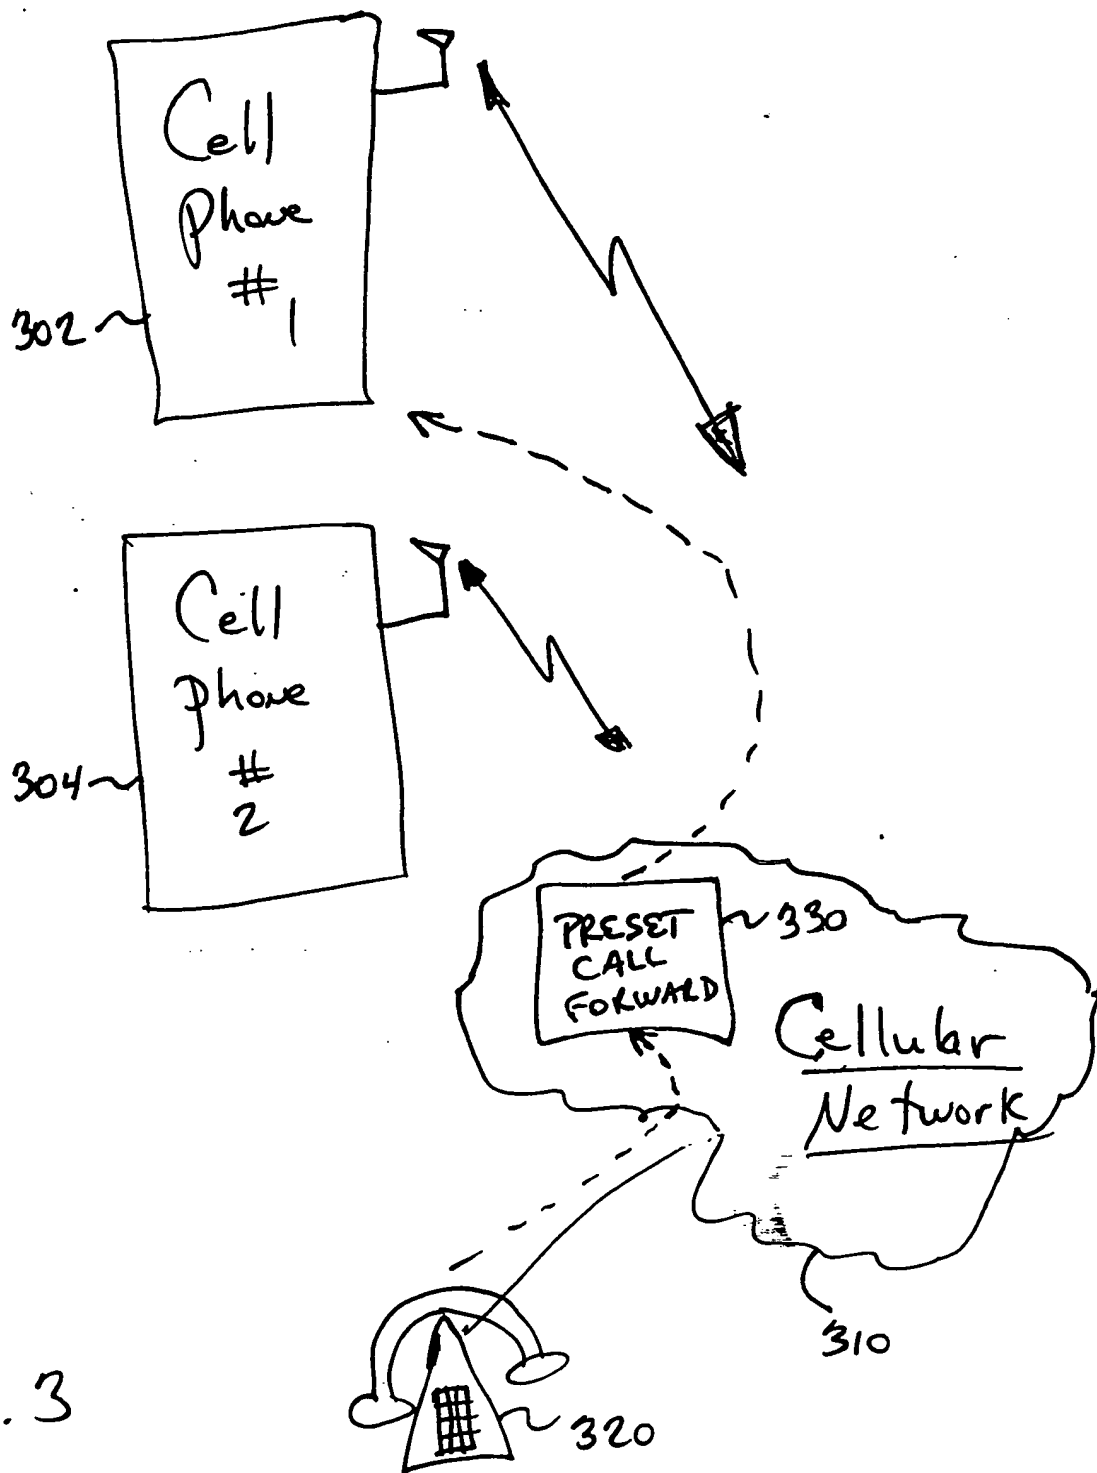 Cell
phone
#
1
302
Cell
phone
#
2
304
PRESET
CALL
FORWARD
330
Cellular
Network
310
320
. 3